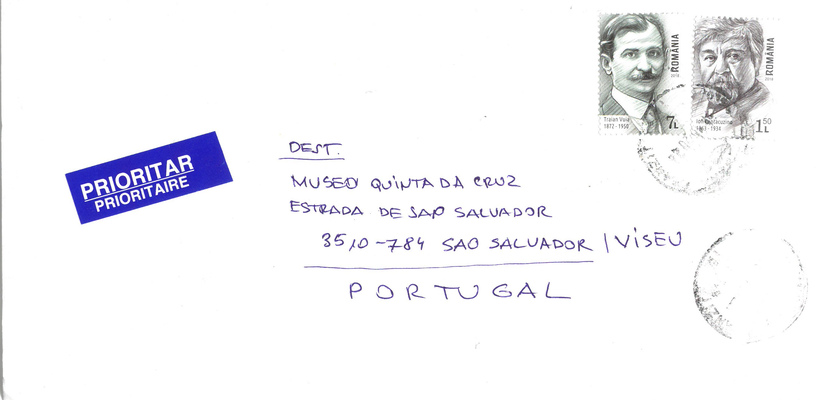 ROMÂNIA
ROMÂNIA
Traian Vuia
1872 - 1950
7L
1934
1 50 L
PRIORITAR
PRIORITAIRE
DEST.
MUSEO QUINTA DA CRUZ
ESTRADA DE SAO SALVADOR
3510-784 SAO SALVADOR / VISEU
PORTUGAL